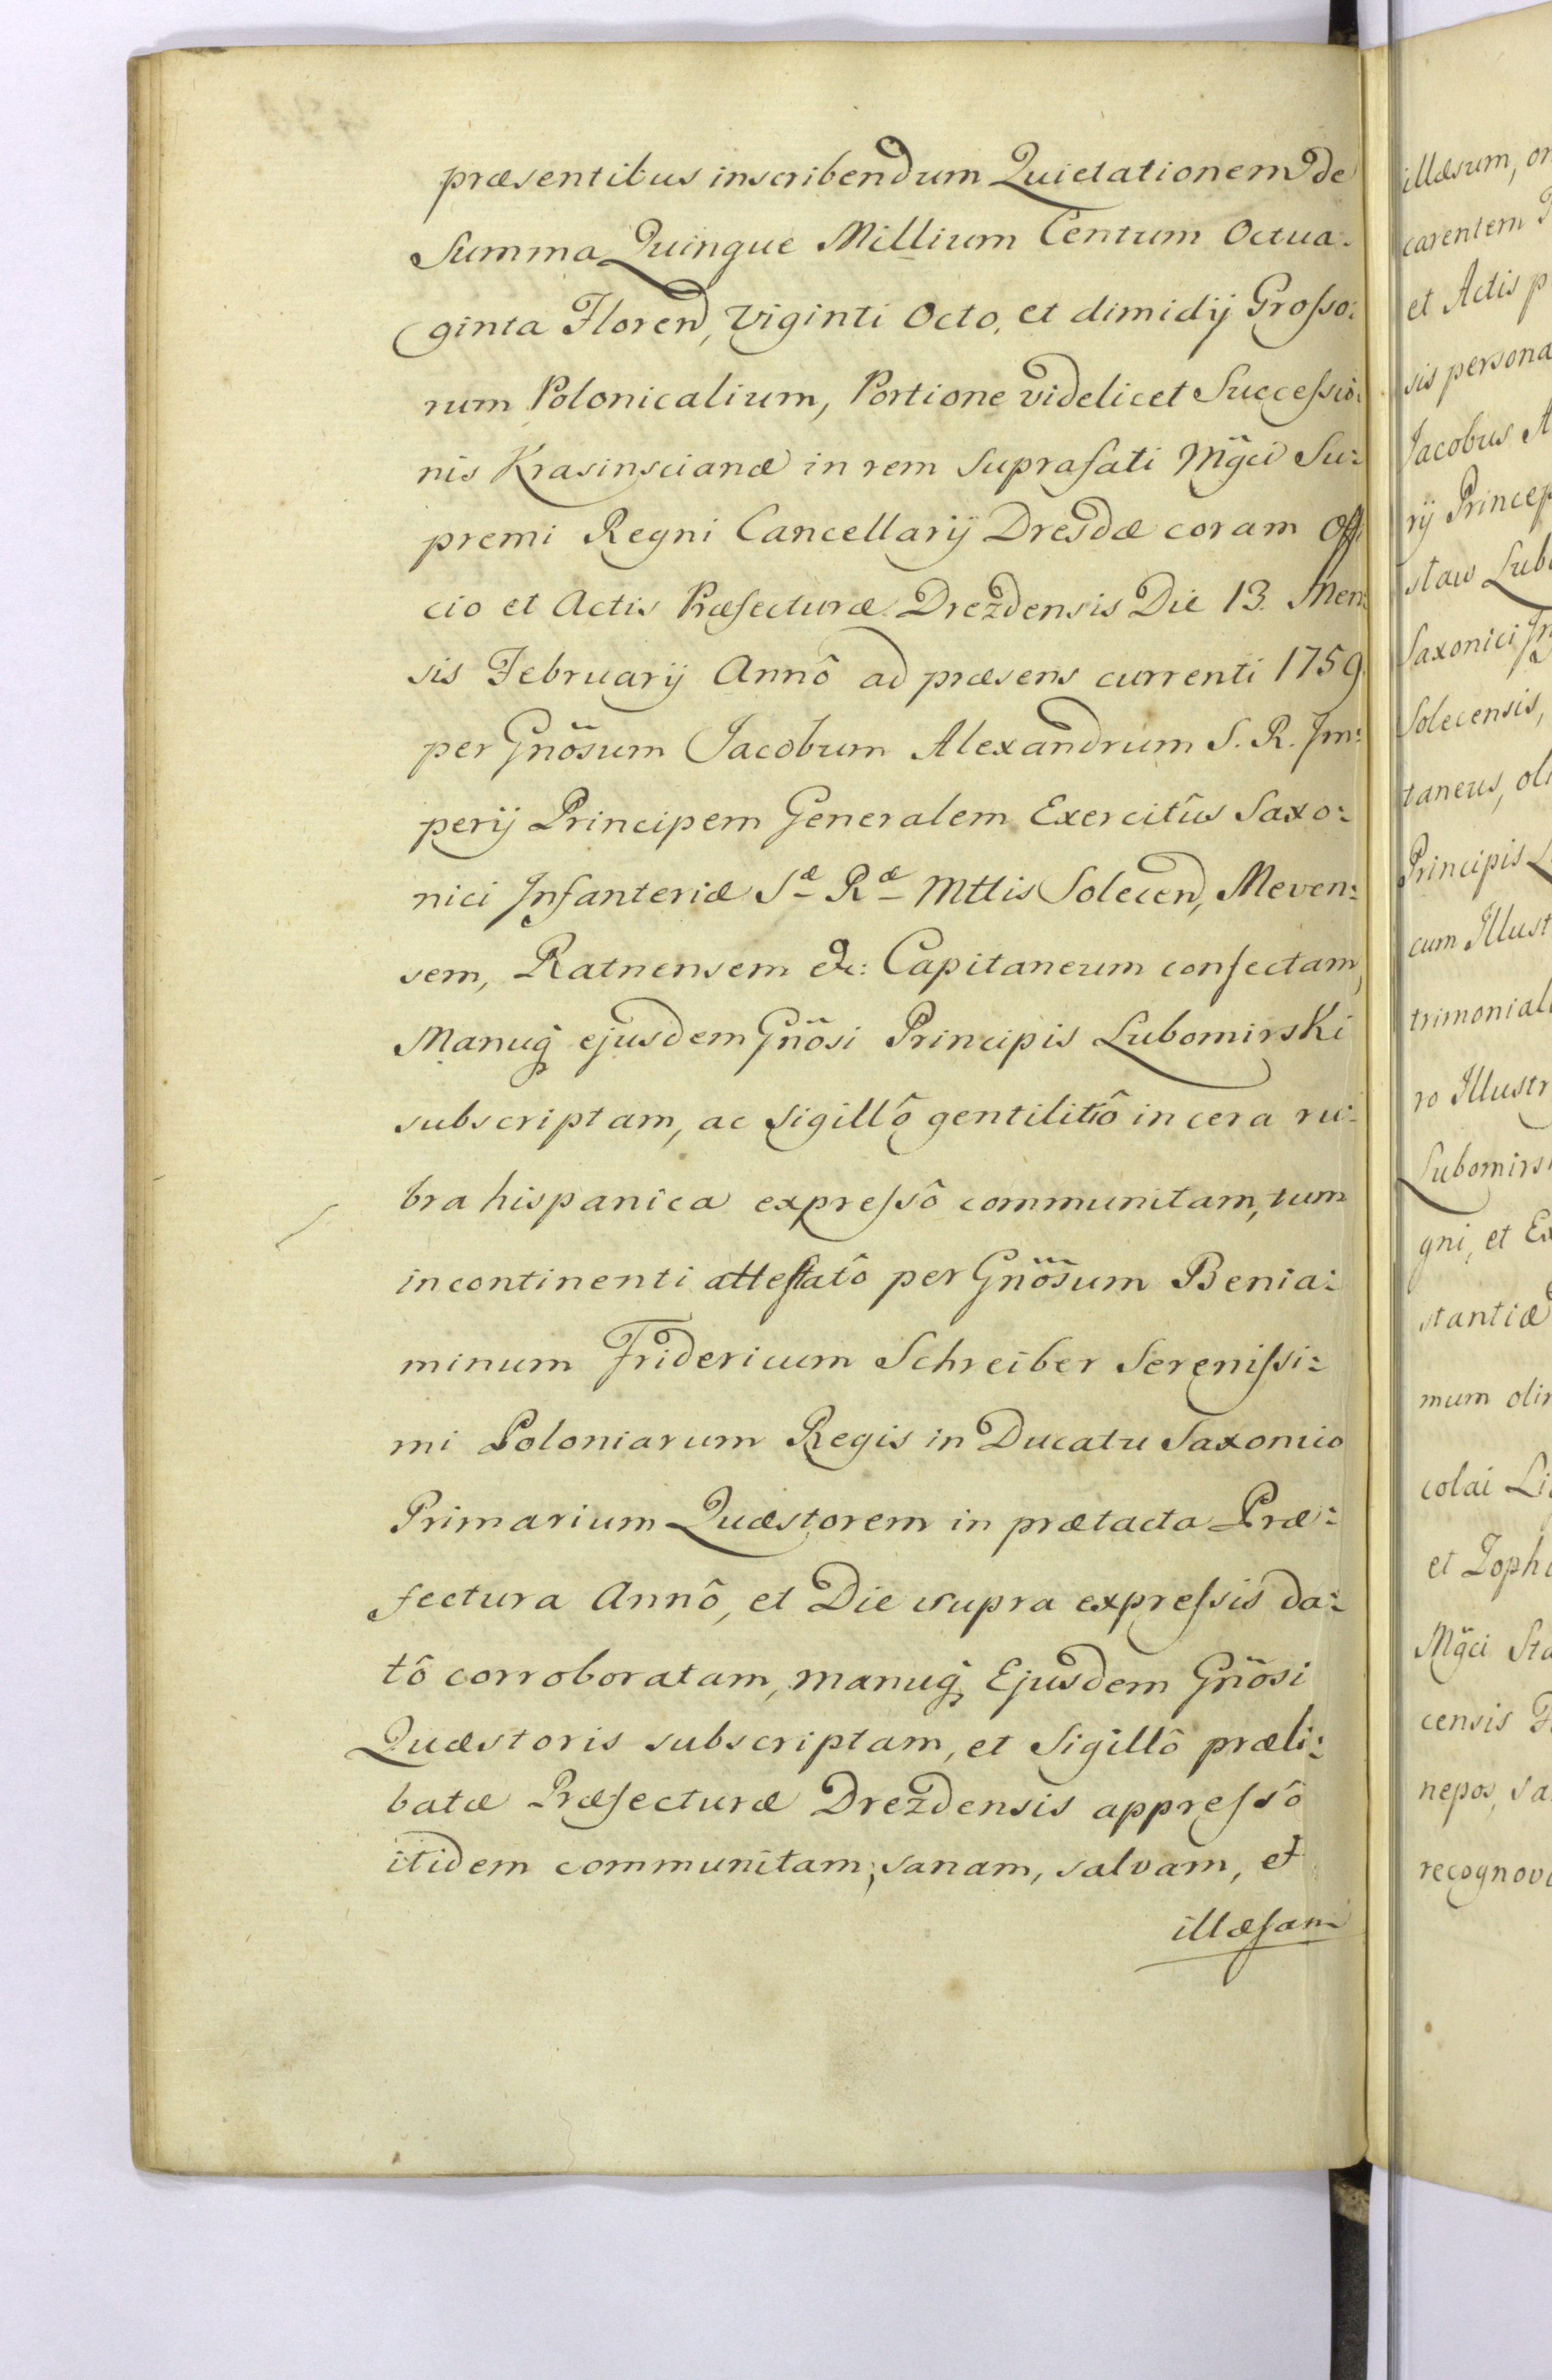 præsentibus inscribendum Quietationem de
Summa Quinque Millium Centum Octua-
ginta Floren, Viginti Octo, et dimidij Grosso:
rum Polonicalium, Portione videlicet Successio:
nis Krasinscianæ in rem suprafati Mg̃ci Su:
premi Regni Cancellarij Dresdæ coram Offi
cio et Actis Præfecturæ Drezdensis Die 13. Men:
sis Februarij Annô ad præsens currenti 1759.
per Gñosum Jacobum Alexandrum S. R. Im:
perij Principem Generalem Exercitûs Saxo:
nici Infanteriæ Sæ Ræ Mttis Solecen, Meven:
sem, Ratnensem &c: Capitaneum confectam,
Manuq̃ ejusdem Gñosi Principis Lubomirski
subscriptam, ac sigillô gentilitiô in cera ru:
bra hispanica expressô communitam, tum
incontinenti attestatô per Gñosum Benia:
minum Fridericum Schreiber Serenissi:
mi Poloniarum Regis in Ducatu Saxonico
Primarium Quæstorem in prætacta Præ:
fectura Annô, et Die supra expressis da:
tô corroboratam, manuq̃ Ejusdem Gñosi
Quæstoris subscriptam, et Sigillô præli:
batæ Præfecturæ Drezdensis appressô
itidem communitam, sanam, salvam, et
illæsam
illæsum,
carentem
et Actis p
sis persona
Jacobus A
rij Princep
staw Lubo
Saxonici
Solecensis,
taneus, oli
Principis L
cum Illust
trimoniali
ro Illustr
Lubomirs
gni, et Ex
stantiæ
mum olim
colai Li
et Zoph
Mg̃ci Sta
censis
nepos, sa
recognov